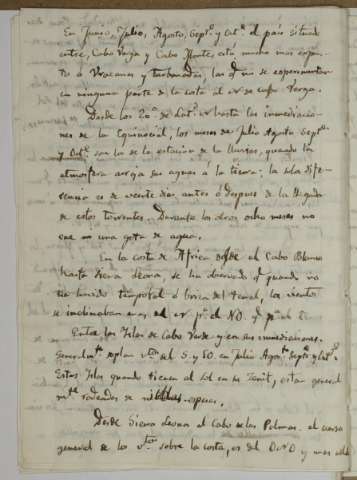 En Junio, Julio, Agosto, Septe. y Octe. el país situado
entre, Cabo Verga y Cabo Monte, está mucho mas espues-
to á Uracanes y turbonadas, las qe. no se esperimentan
en ninguna parte de la costa al N de cabo Verga.
Desde los 20° de Latd. N hasta las inmediacio-
nes de la Equinocial, los meses de Julio Agosto Septe.
y Octe. son los de la estacion de las lluvias, quando la
atmosfera arroja sus aguas á la tierra; la sola dife-
rencia es de veinte dias antes ó despues de la llegada
de estos torrentes. Durante los otros ocho meses no
cae una gota de agua.
En la costa de Africa desde el Cabo Blanco
hasta Sierra Leona, se ha observado qe. quando no
ha habido temporal ó brisa del Terral, los vientos
se inclinaban mas al N pr. el NO. qe. pr. el E.
Entre las Islas de Cabo Verde y en sus inmediaciones.
Generalmte. soplan vtos. del S. y SO. en Julio Agto. Septe. y Octe.
Estas Islas quando tienen al Sol en su Zenit, estan general
mte. rodeadas de nieblas espesas.
Desde Sierra Leona al Cabo de las Palmas. el curso
general de los vtos. sobre la costa, es del OSO y mas allá